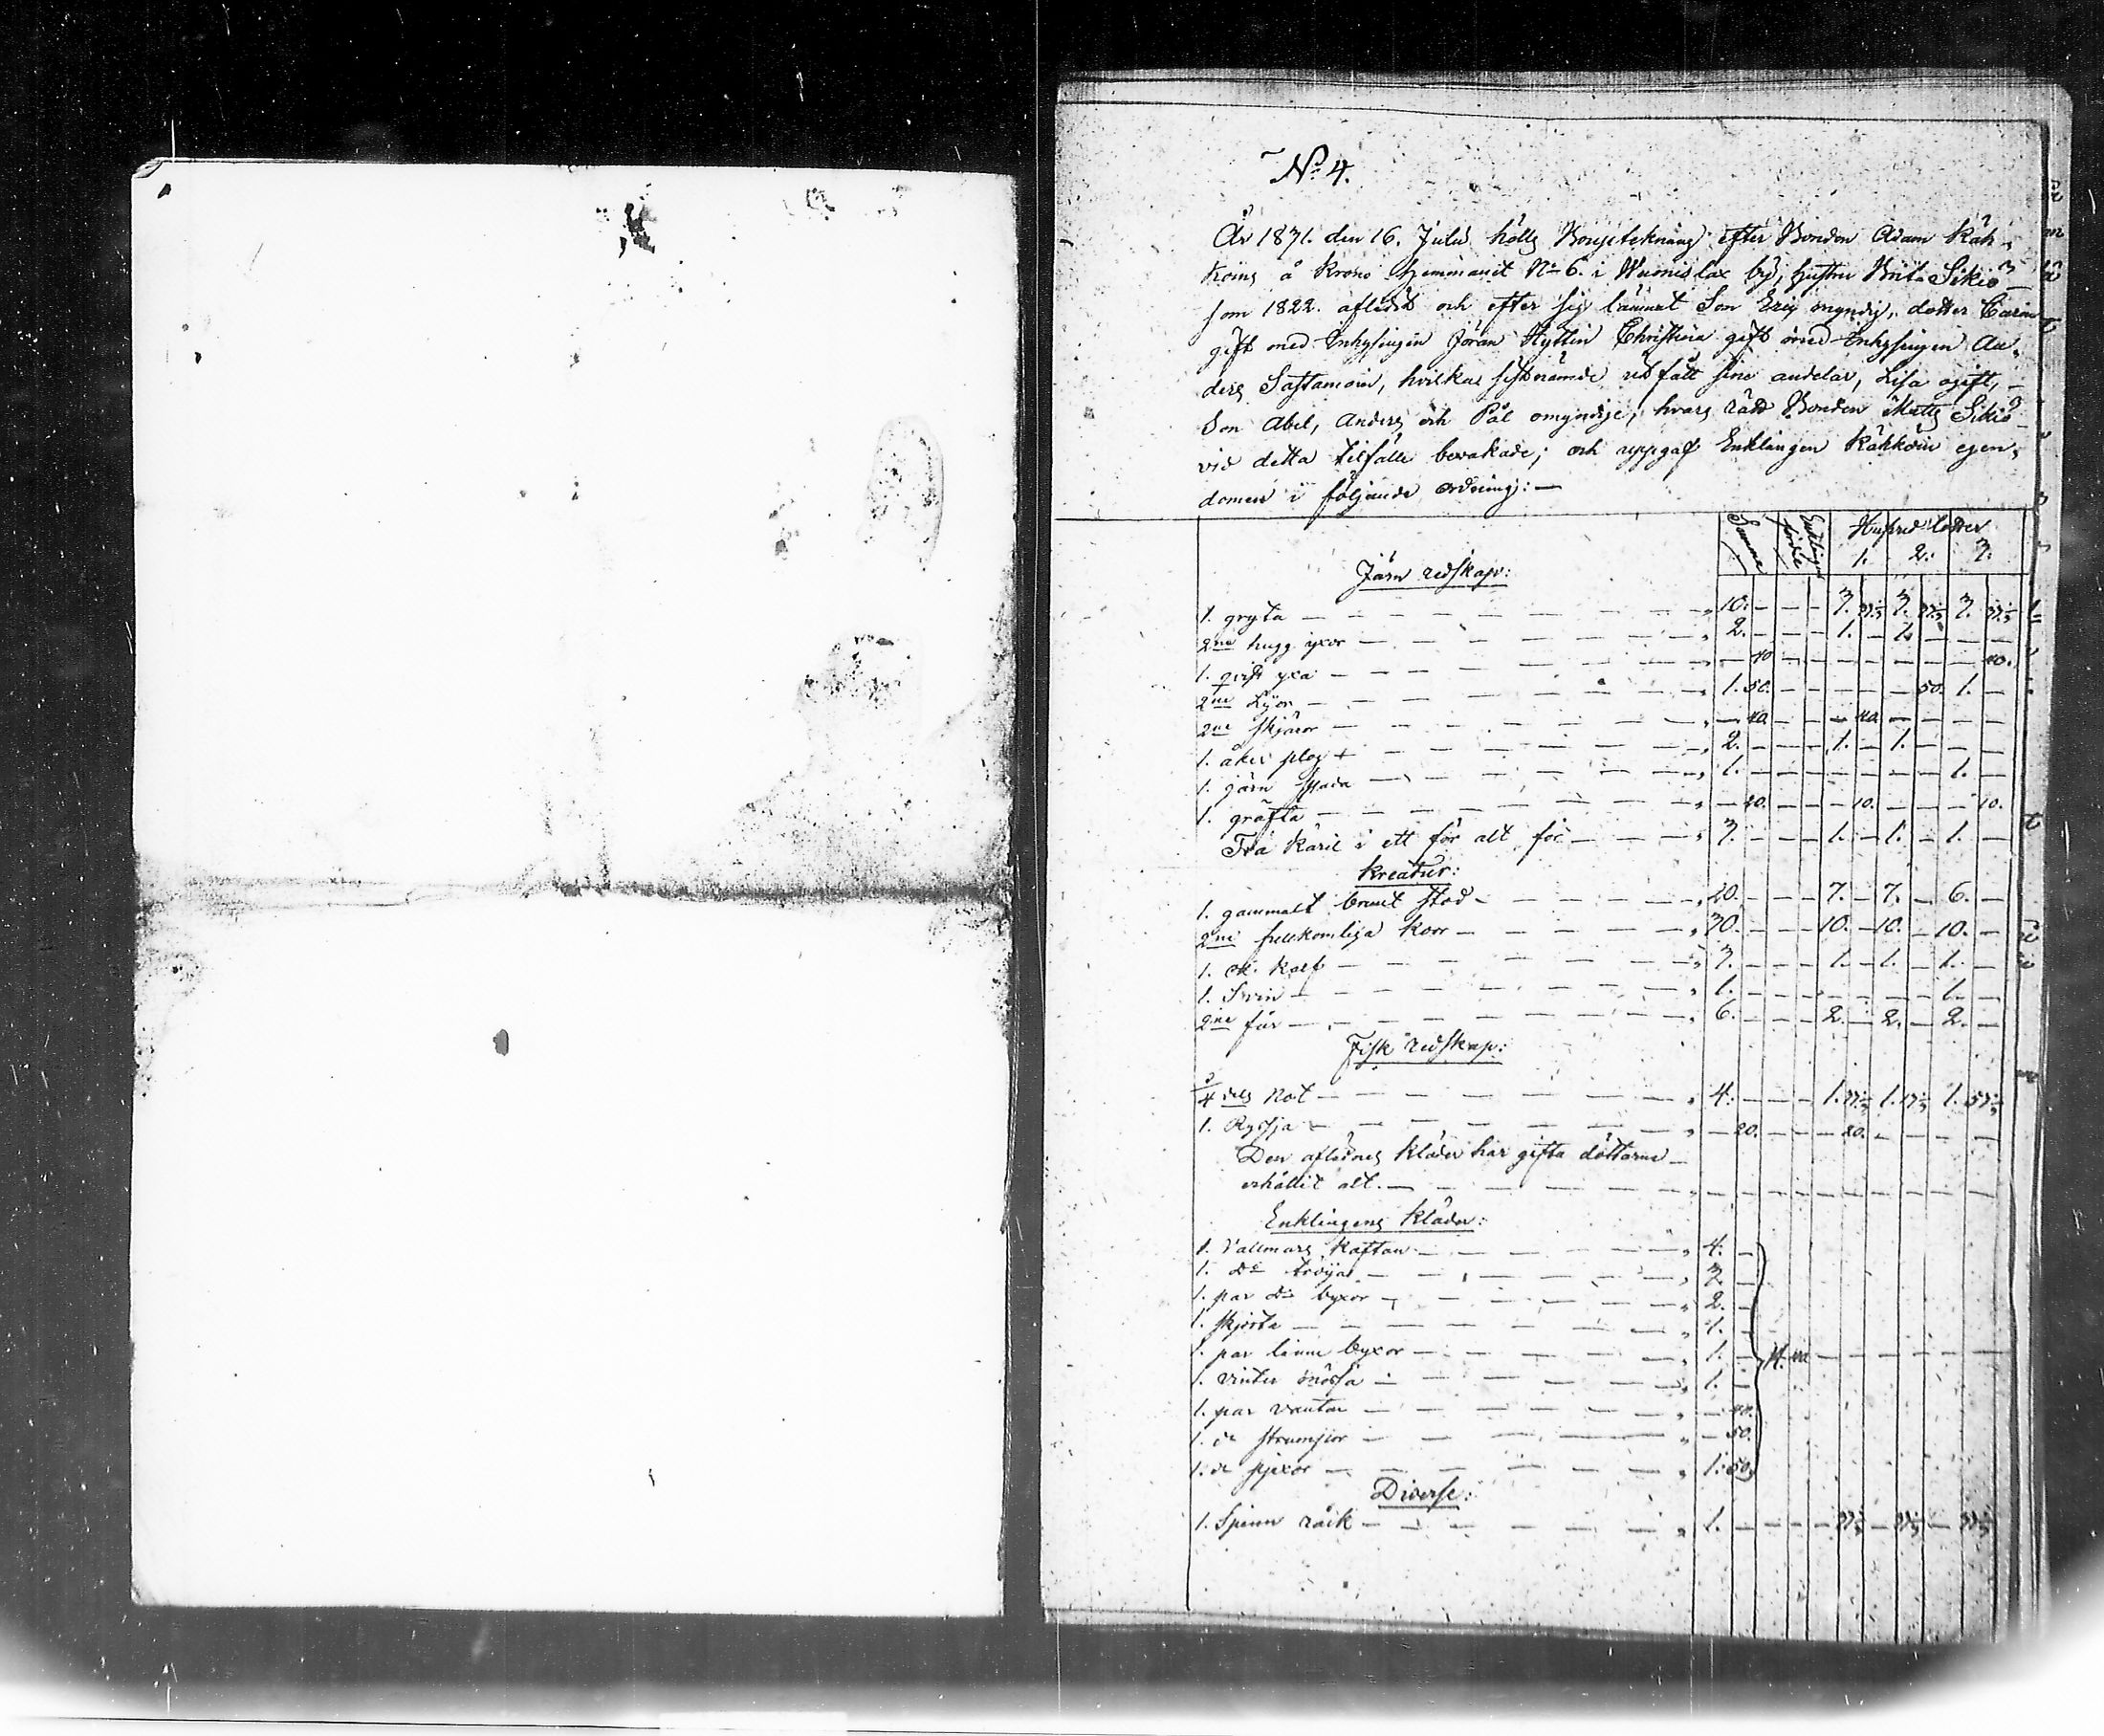 No 4.
År 1831. den 16. Julii hölls Boupteknung efter Bonden Adam Käh-
köins å Krono hemmanet No 6. i Wuonislax by, hustru Brita Sikiö
som 1822. afledit och efter sig lämnat Son Eric myndig, dotter Carin
gift med Inhysingen Jöran Hyttin Christina gift med Inhysingen An-
ders Sastamoin, hvilkas sistnämde utfått sine andelar, Lisa ogift,
Son Abel, Anders och Pål omyndige, hvars rätt Bonden Matts Sikiö
vid detta tilfälle bevakade; och uppgaf Enklingen Kähköin egen-
domen i följande ordning: —
Summa Enklingens Husfred lotter
1. 2. 3.
Järn redskap:
1. gryta — 10. — — — 3. 33⅓ 3. 33⅓ 3. 33⅓
2ne hugg yxor — 2. — — — 1. — 1. — — —
1. yxa — — 40 — — — — — — — 40.
2ne Lÿor — 1. 50. — — — — — 50. 1. —
2ne skjäror — — 40. — — — 40. — — — —
1. åker plog — 2. — — — 1. — 1. — — —
1. järn spada — 1. — — — — — — — 1. —
1. gräfta — — 20. — — — 10. — — — 10.
Trä käril i ett för alt för — 3. — — — 1. — 1. — 1. —
Kreatur:
1. gammalt brunt stod — 20. — — — 7. — 7. — 6. —
2ne fullkomliga koor — 30. — — — 10. — 10. — 10. —
1. kalf — 3. — — — 1. — 1. — 1. —
1. Svin — 1. — — — — — — — 1. —
2ne får — 6. — — — 2. — 2. — 2. —
Fisk redskap:
¾ dels Not — 4. — — — 1. 1. 1.
1. Ryssja — — 20. — — — 20. — — — —
Den aflednes kläder har gifta döttarne
erhållit alt. —
Enklingens kläder:
1. Vallmars kaftan — 4. —
1. do tröija — 3. —
1. par do byxor — 2. —
1. skjorta — 1. —
1. par linne byxor — 1. —
1. vinter mössa — 1. —
1. par vantar — — 40.
1. do strumpor — — 50.
1. do pjexor — 1. 50.
Diverse:
1. Spinn råck — 1. — — — — 33⅓ — 33⅓ — 33⅓